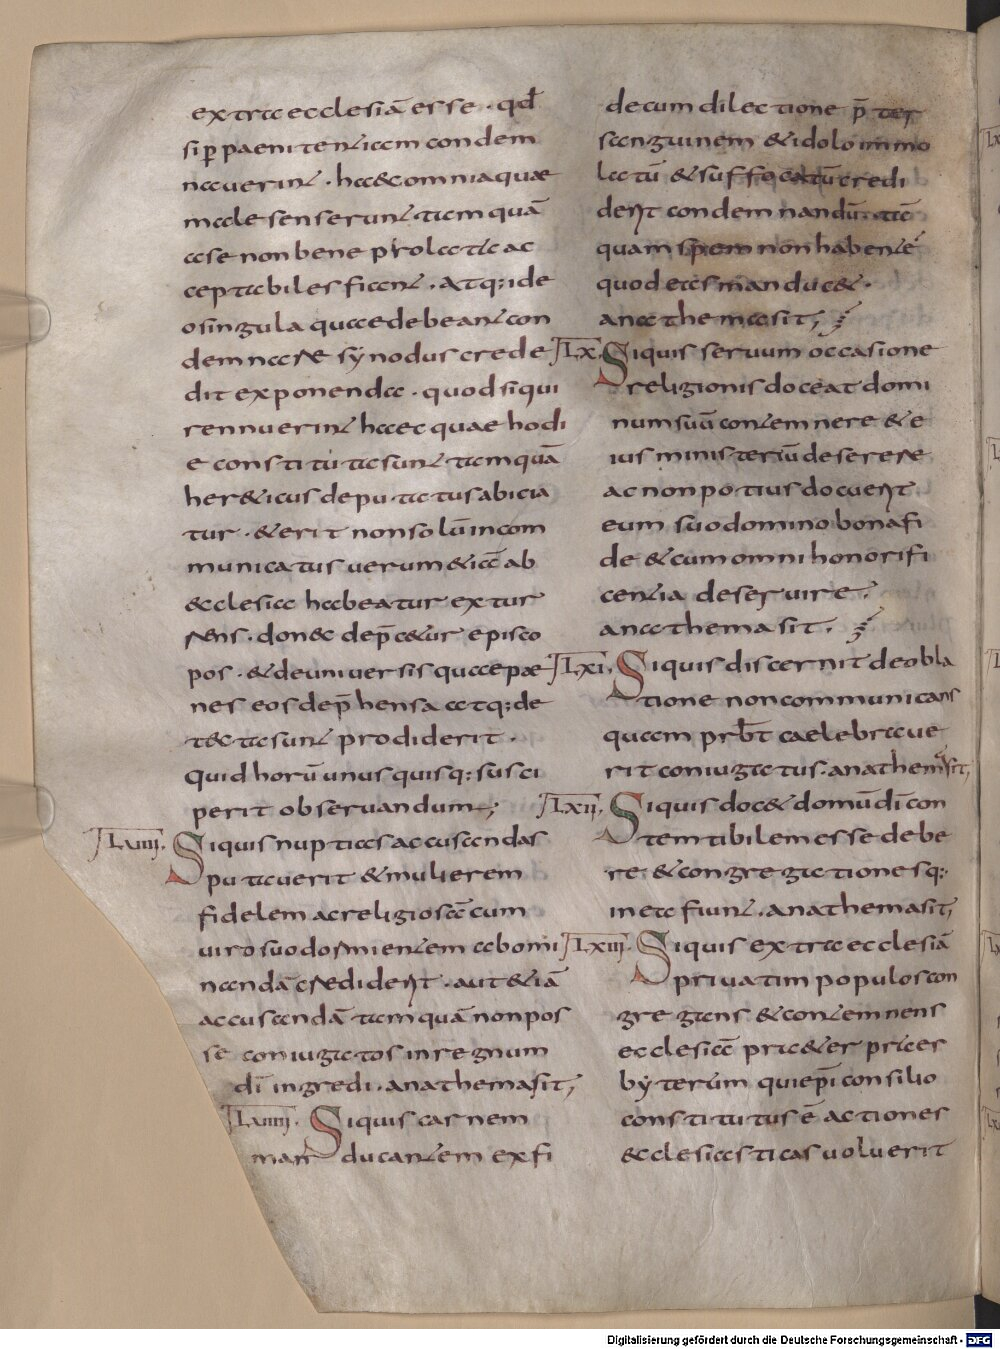 extra ecclesiā esse · qd̄
si ꝑ paenitentiam condem
nauerint · haec omnia quae
male senserunt tam quā
a se non bene prolata ac
ceptabiles fiant · atq: ide
o singula quae debeant con
demnare synodus crede
dit exponenda · quod si qui
rennuerint haec quae hodi
e constituta sunt tam quā
hereticus deputatus abicia
tur · & erit non solū incom
municatus uerum & iā ab
ecclesiae habeatur extur
rens · donec depcetur episco
pos · & de uniuersis quae pae
nes eos dep̄hensa atq: de
tecta sunt prodiderit ·
Quid horū unusquisq: susci
perit obseruandum;
LVIII. Siquis nuptias accusandas
putauerit & mulierem
fidelem ac religiosā cum
uiro suo dormientem abomi
nandā crediderit · aut etiā
accusandā tam quā non pos
se coniugatos in regnum
dī ingredi · anathema sit;
LVIIII. Siquis carnem
manducantem ex fi
de cum dilectione p̄ter
sanguinem & idolo immo
latū & suffocatū credi
derit condemnandū · tā
quam spem non habente
quod eas manducet ·
anathema sit;
LX. Siquis seruum occasione
religionis doceat domi
num suū contemnere & e
ius ministeriū deserere
ac non potius docuerit
eum suo domino bona fi
de & cum omni honorifi
centia deseruire ·
anathema sit ·
LXI. Siquis discernit de obla
tione non communicans
quam prb̄t caelebraue
rit coniugatus · anathema sit;
LXII. Siquis docet domū dī con
temtibilem esse debe
re · & congregationesq:
in ea fiunt · anathema sit;
LXIII. Siquis extra ecclesiā
priuatim populos con
gregans & contemnens
ecclesiā praeter praes
byterum qui ep̄i consilio
constitutus ē actiones
ecclesiasticas uoluerit
Digitalisierung gefördert durch die Deutsche Forschungsgemeinschaft - DFG